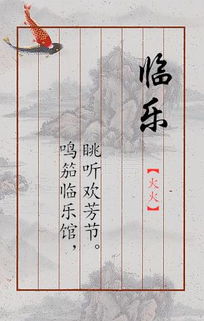 临乐
【火火】
鸣笳临乐馆，
眺听欢芳节。